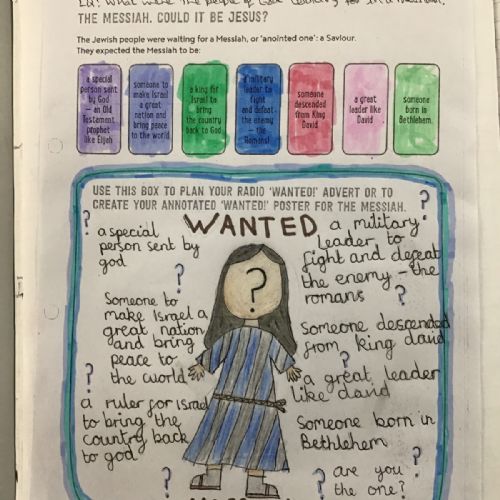 LQ: What were the people of God looking for in a Messiah.
THE MESSIAH. COULD IT BE JESUS?
The Jewish people were waiting for a Messiah, or 'anointed one': a Saviour.
They expected the Messiah to be:
a special
person sent
by God
– an Old
Testament
prophet
like Elijah
someone to
make Israel
a great
nation and
bring peace
to the world
a king for
Israel to
bring
the country
back to God
a military
leader to
fight
and defeat
the enemy
– the
Romans!
someone
descended
from King
David
a great
leader like
David
someone
born in
Bethlehem.
USE THIS BOX TO PLAN YOUR RADIO 'WANTED!' ADVERT OR TO
CREATE YOUR ANNOTATED 'WANTED!' POSTER FOR THE MESSIAH.
WANTED
?
a special
person sent by
god
?
Someone to
make Israel a
great nation
and bring
peace to
the world
?
a ruler for Israel
to bring the
country back
to god
?
?
?
a military
leader to
fight and defeat
the enemy – the
romans
?
Someone descended
from king david
?
a great leader
like david
Someone born in
Bethlehem
? are you
the one?